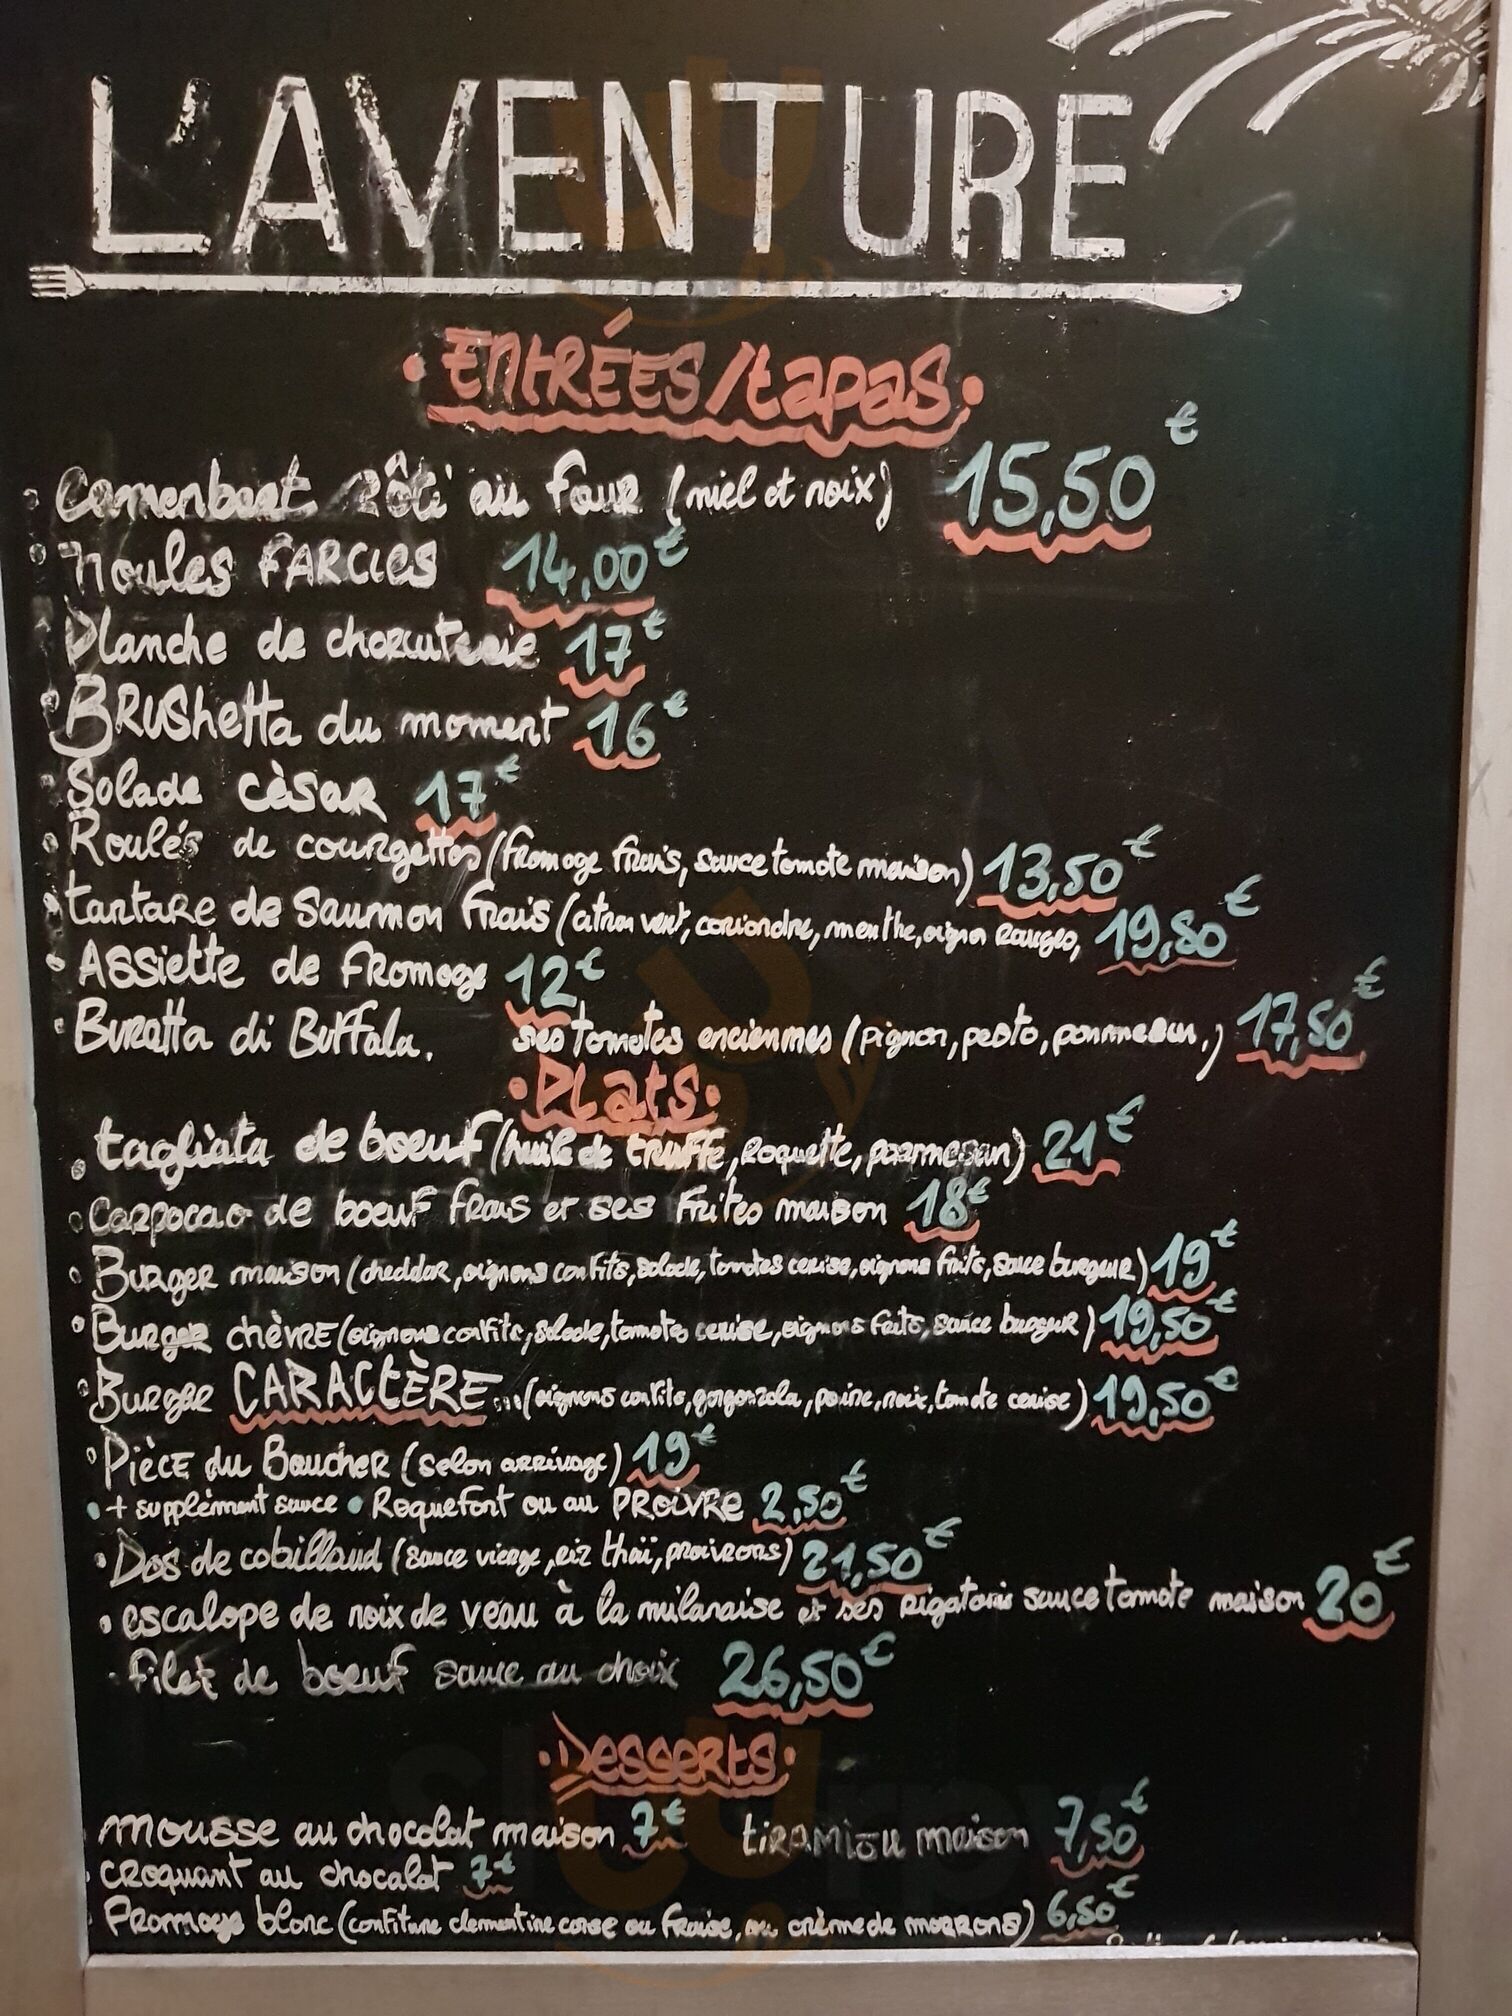 L'AVENTURE
• ENtRÉES/tapas •
• Camenbert Rôti au four (miel et noix) 15,50€
• Moules FARCIES 14,00€
• Planche de charcuterie 17€
• BRUShetta du moment 16€
• Salade cèsar 17€
• Roulés de courgettes (fromage frais, sauce tomate maison) 13,50€
• tartare de Saumon Frais (citron vert, coriandre, menthe, oignon Rouges, 19,50€
• Assiette de fromage 12€
• Buratta di Buffala. ses tomates anciennes (pignon, pesto, parmesan,) 17,50€
• Plats •
• tagliata de boeuf (huile de truffe, roquette, parmesan) 21€
• Carpacao de boeuf frais et ses frites maison 18€
• Burger maison (cheddar, oignons confits, salade, tomates cerise, oignons frits, sauce burgeur) 19€
• Burger chèvre (oignons confits, salade, tomates cerise, oignons frits, sauce burgeur) 19,50€
• Burger CARACtÈRE...(oignons confits, gorgonzola, poire, noix, tomate cerise) 19,50€
• Pièce du Boucher (selon arrivage) 19€
• + supplèment sauce • Roquefort ou au PROIVRE 2,50€
• Dos de cabillaud (sauce vierge, riz thaï, proivrons) 21,50€
• escalope de noix de veau à la milanaise et ses rigatonis sauce tomate maison 20€
• filet de boeuf sauce au choix 26,50€
• Desserts •
• mousse au chocolat maison 7€ tiRAMiSu maison 7,50€
• croquant au chocolat 7€
• Fromage blanc (confiture clementine corse ou fraise, ou crème de marrons) 6,50€